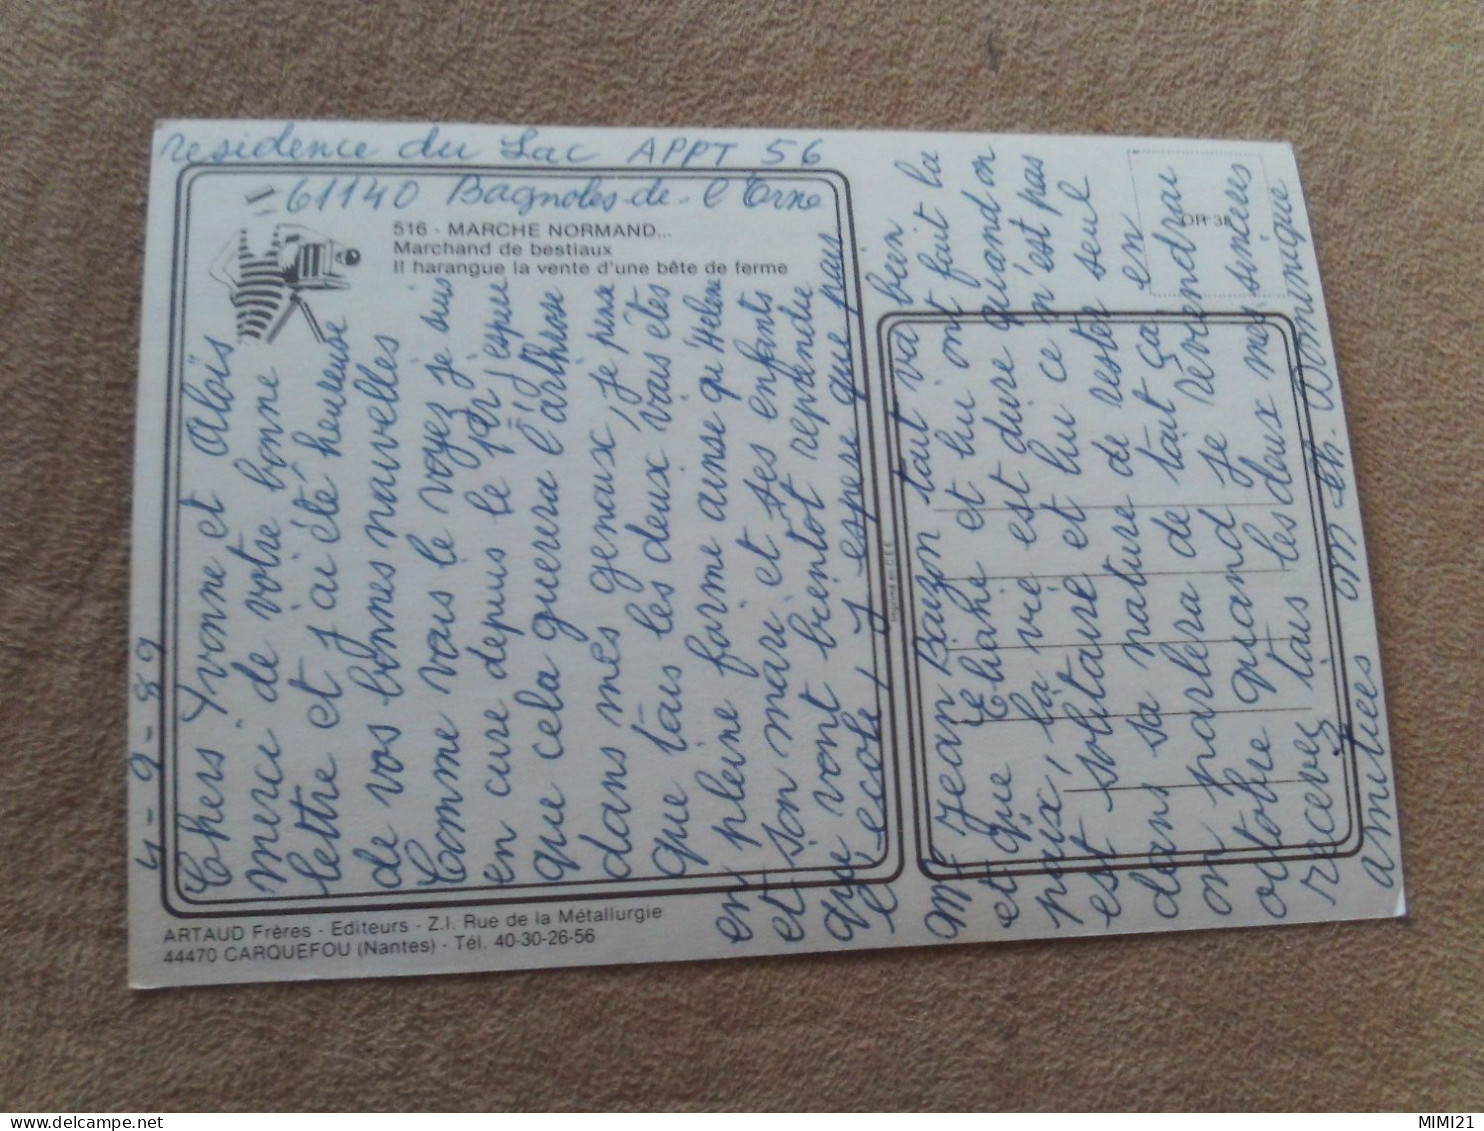 residence du Lac APPT 56
61140 Bagnoles-de-l'Orne
516 - MARCHE NORMAND...
Marchand de bestiaux
Il harangue la vente d'une bête de ferme
4-9-89
Chers Yvonne et Aloïs
merci de votre bonne
lettre et j'ai été heureuse
de vos bonnes nouvelles
Comme vous le voyez je suis
en cure depuis le 1er j'espère
que cela guerera l'arthrose
dans mes genoux, je pense
que tous les deux vous êtes
en pleine forme ainse qu'Helene
et son mari et ses enfants
qui vont bientot reprendre
l'ecole, j'espere que pour
Mr Jean Bouzon tout va bien
et que Eliane et lui ont fait la
paix, la vie est dure quand on
est solitaire et lui ce n'est pas
dans sa nature de rester seul
on parlera de tout ça en
octobre quand je reviendrai
recevez tous les deux mes sincères
amitiés Mme Ch. Dominique
OR 38
Imprimé en C.E.E.
ARTAUD Frères - Editeurs - Z.I. Rue de la Métallurgie
44470 CARQUEFOU (Nantes) - Tél. 40-30-26-56
MIMI21